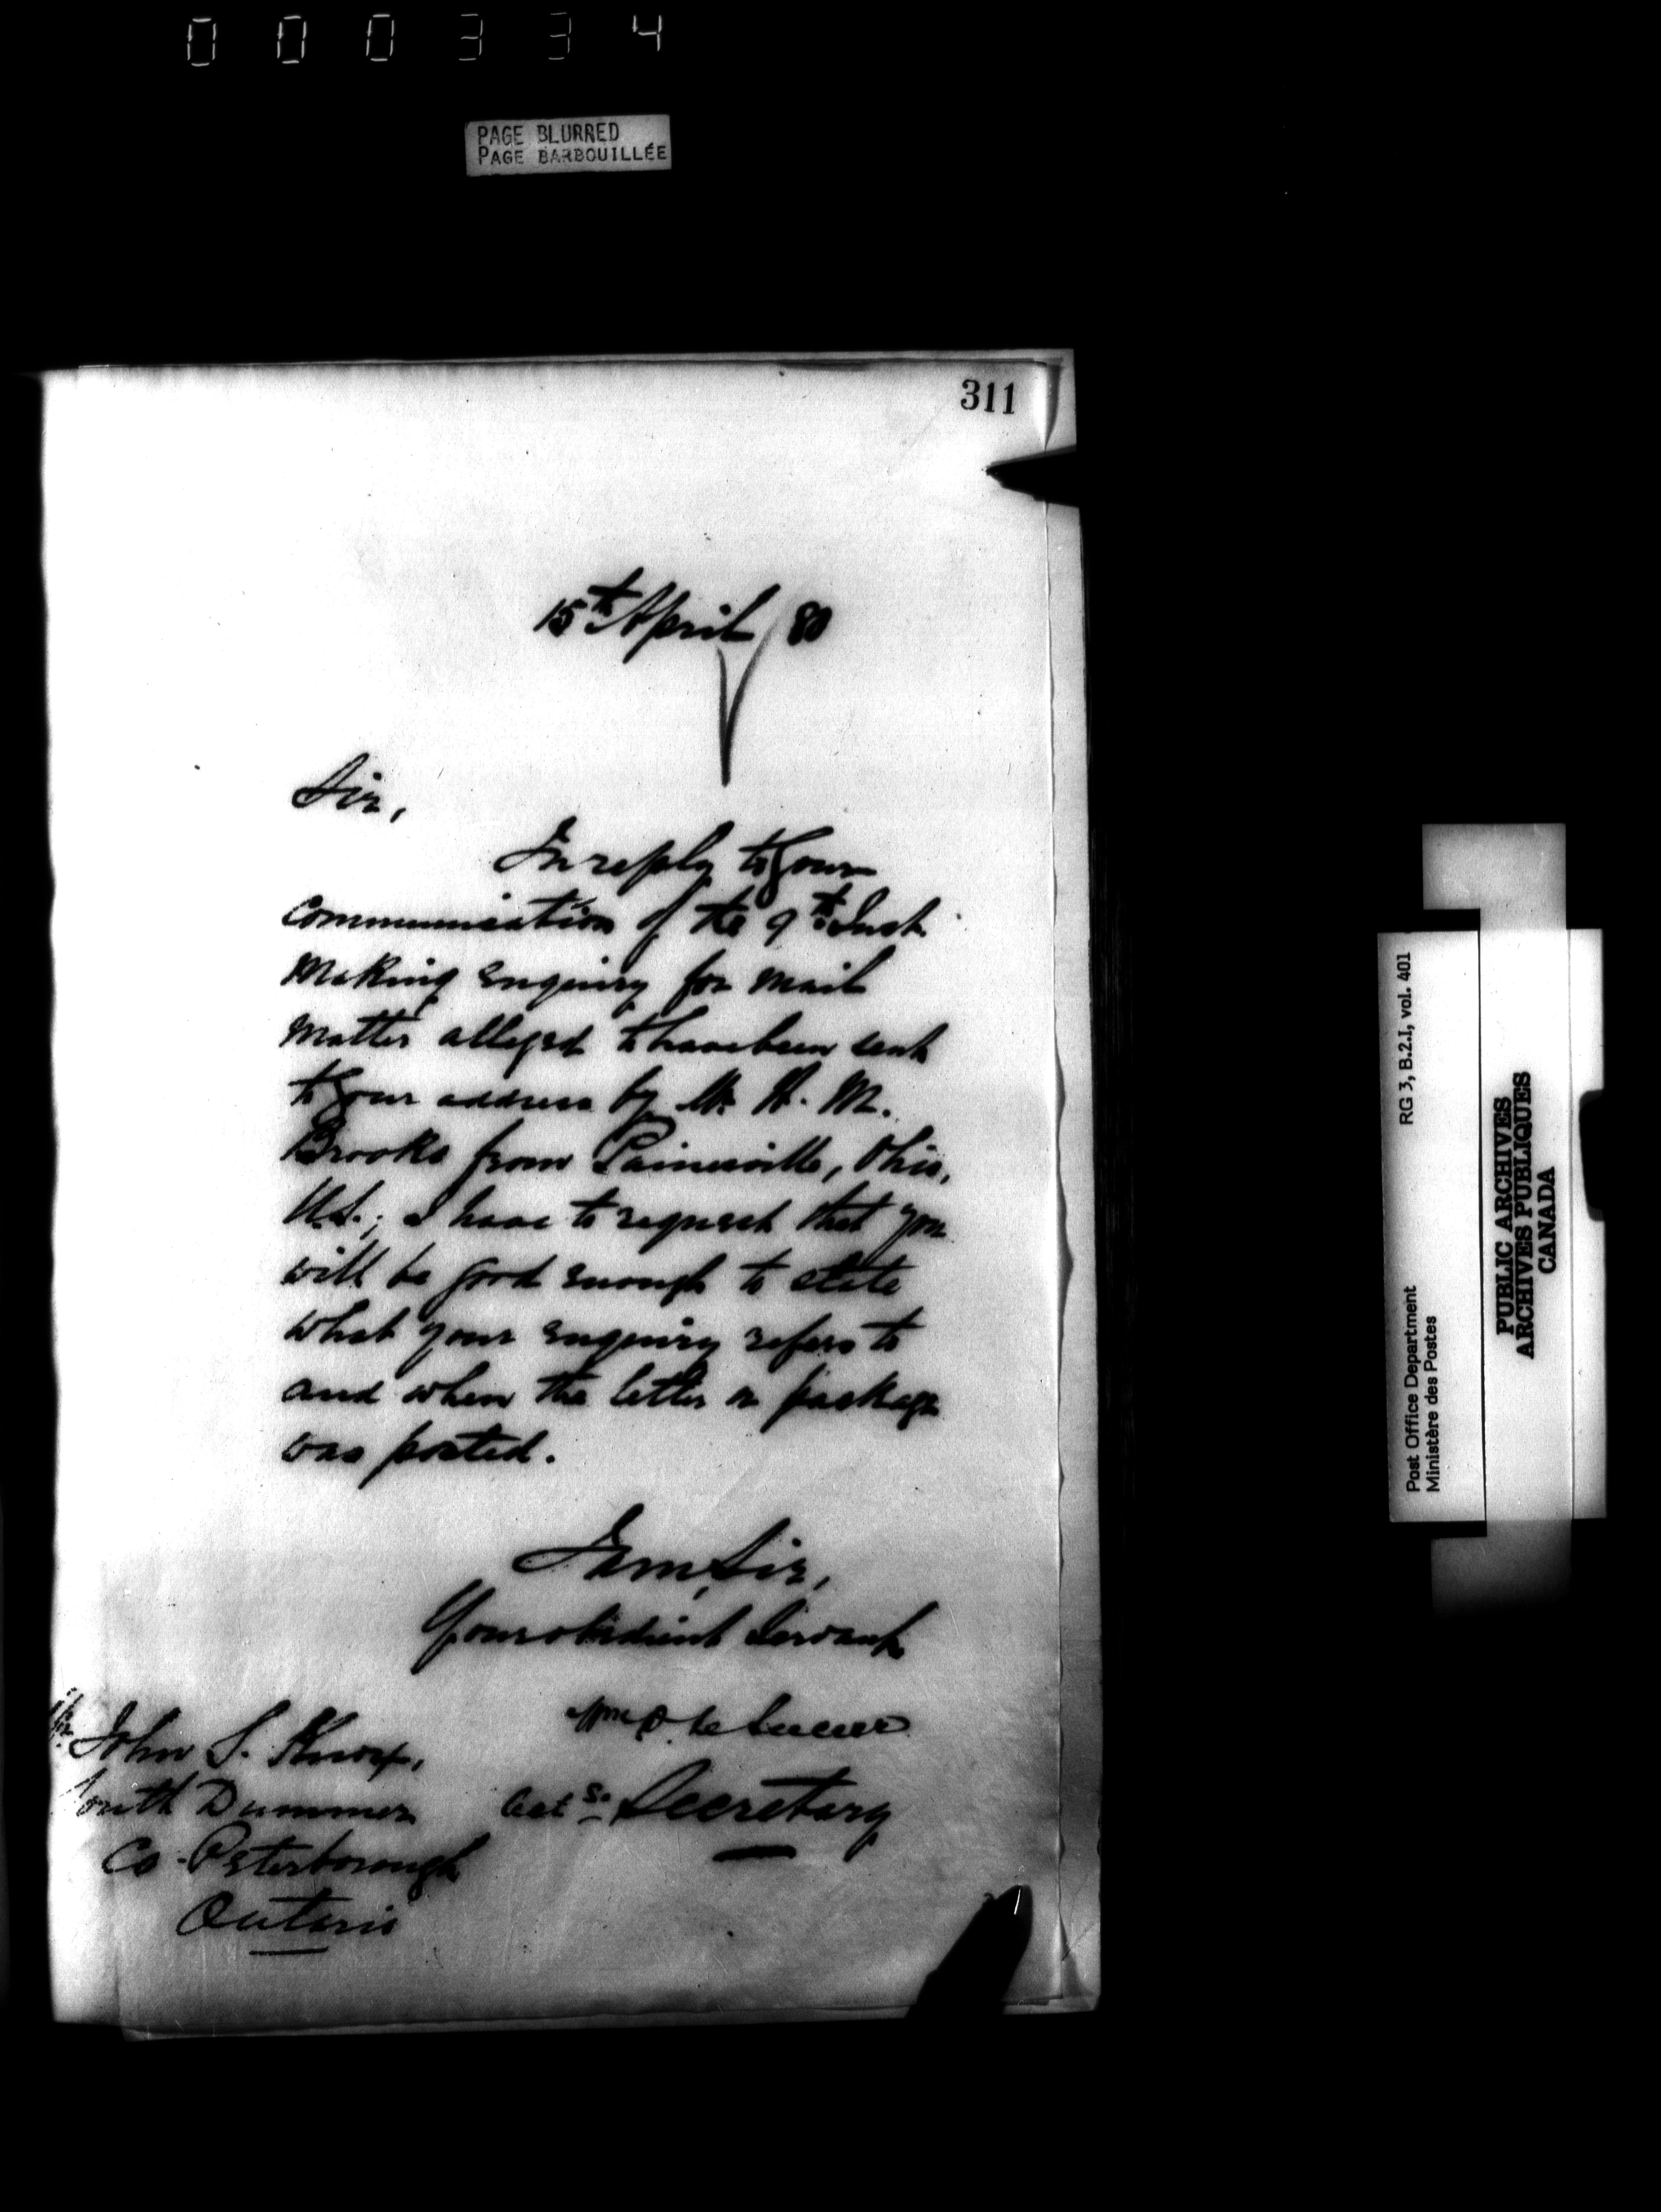 000334
PAGE BLURRED
PAGE BARBOUILLÉE
311
15th April / 80
Sir,
In reply to your
communication of the 9th Inst
making enquiry for mail
matter alleged to have been sent
to your address by Mr. H. M.
Brooks from Painesville, Ohio,
U.S.; I have to request that you
will be good enough to state
what your enquiry refers to
and when the letter or package
was posted.
I am, Sir,
Your obedient Servant
Wm D. Le Sueur
Secretary
Mr. John S. Knox,
South Dummer
Co. Peterborough
Ontario
RG 3, B.2.I, vol. 401
Post Office Department
Ministère des Postes
PUBLIC ARCHIVES
ARCHIVES PUBLIQUES
CANADA